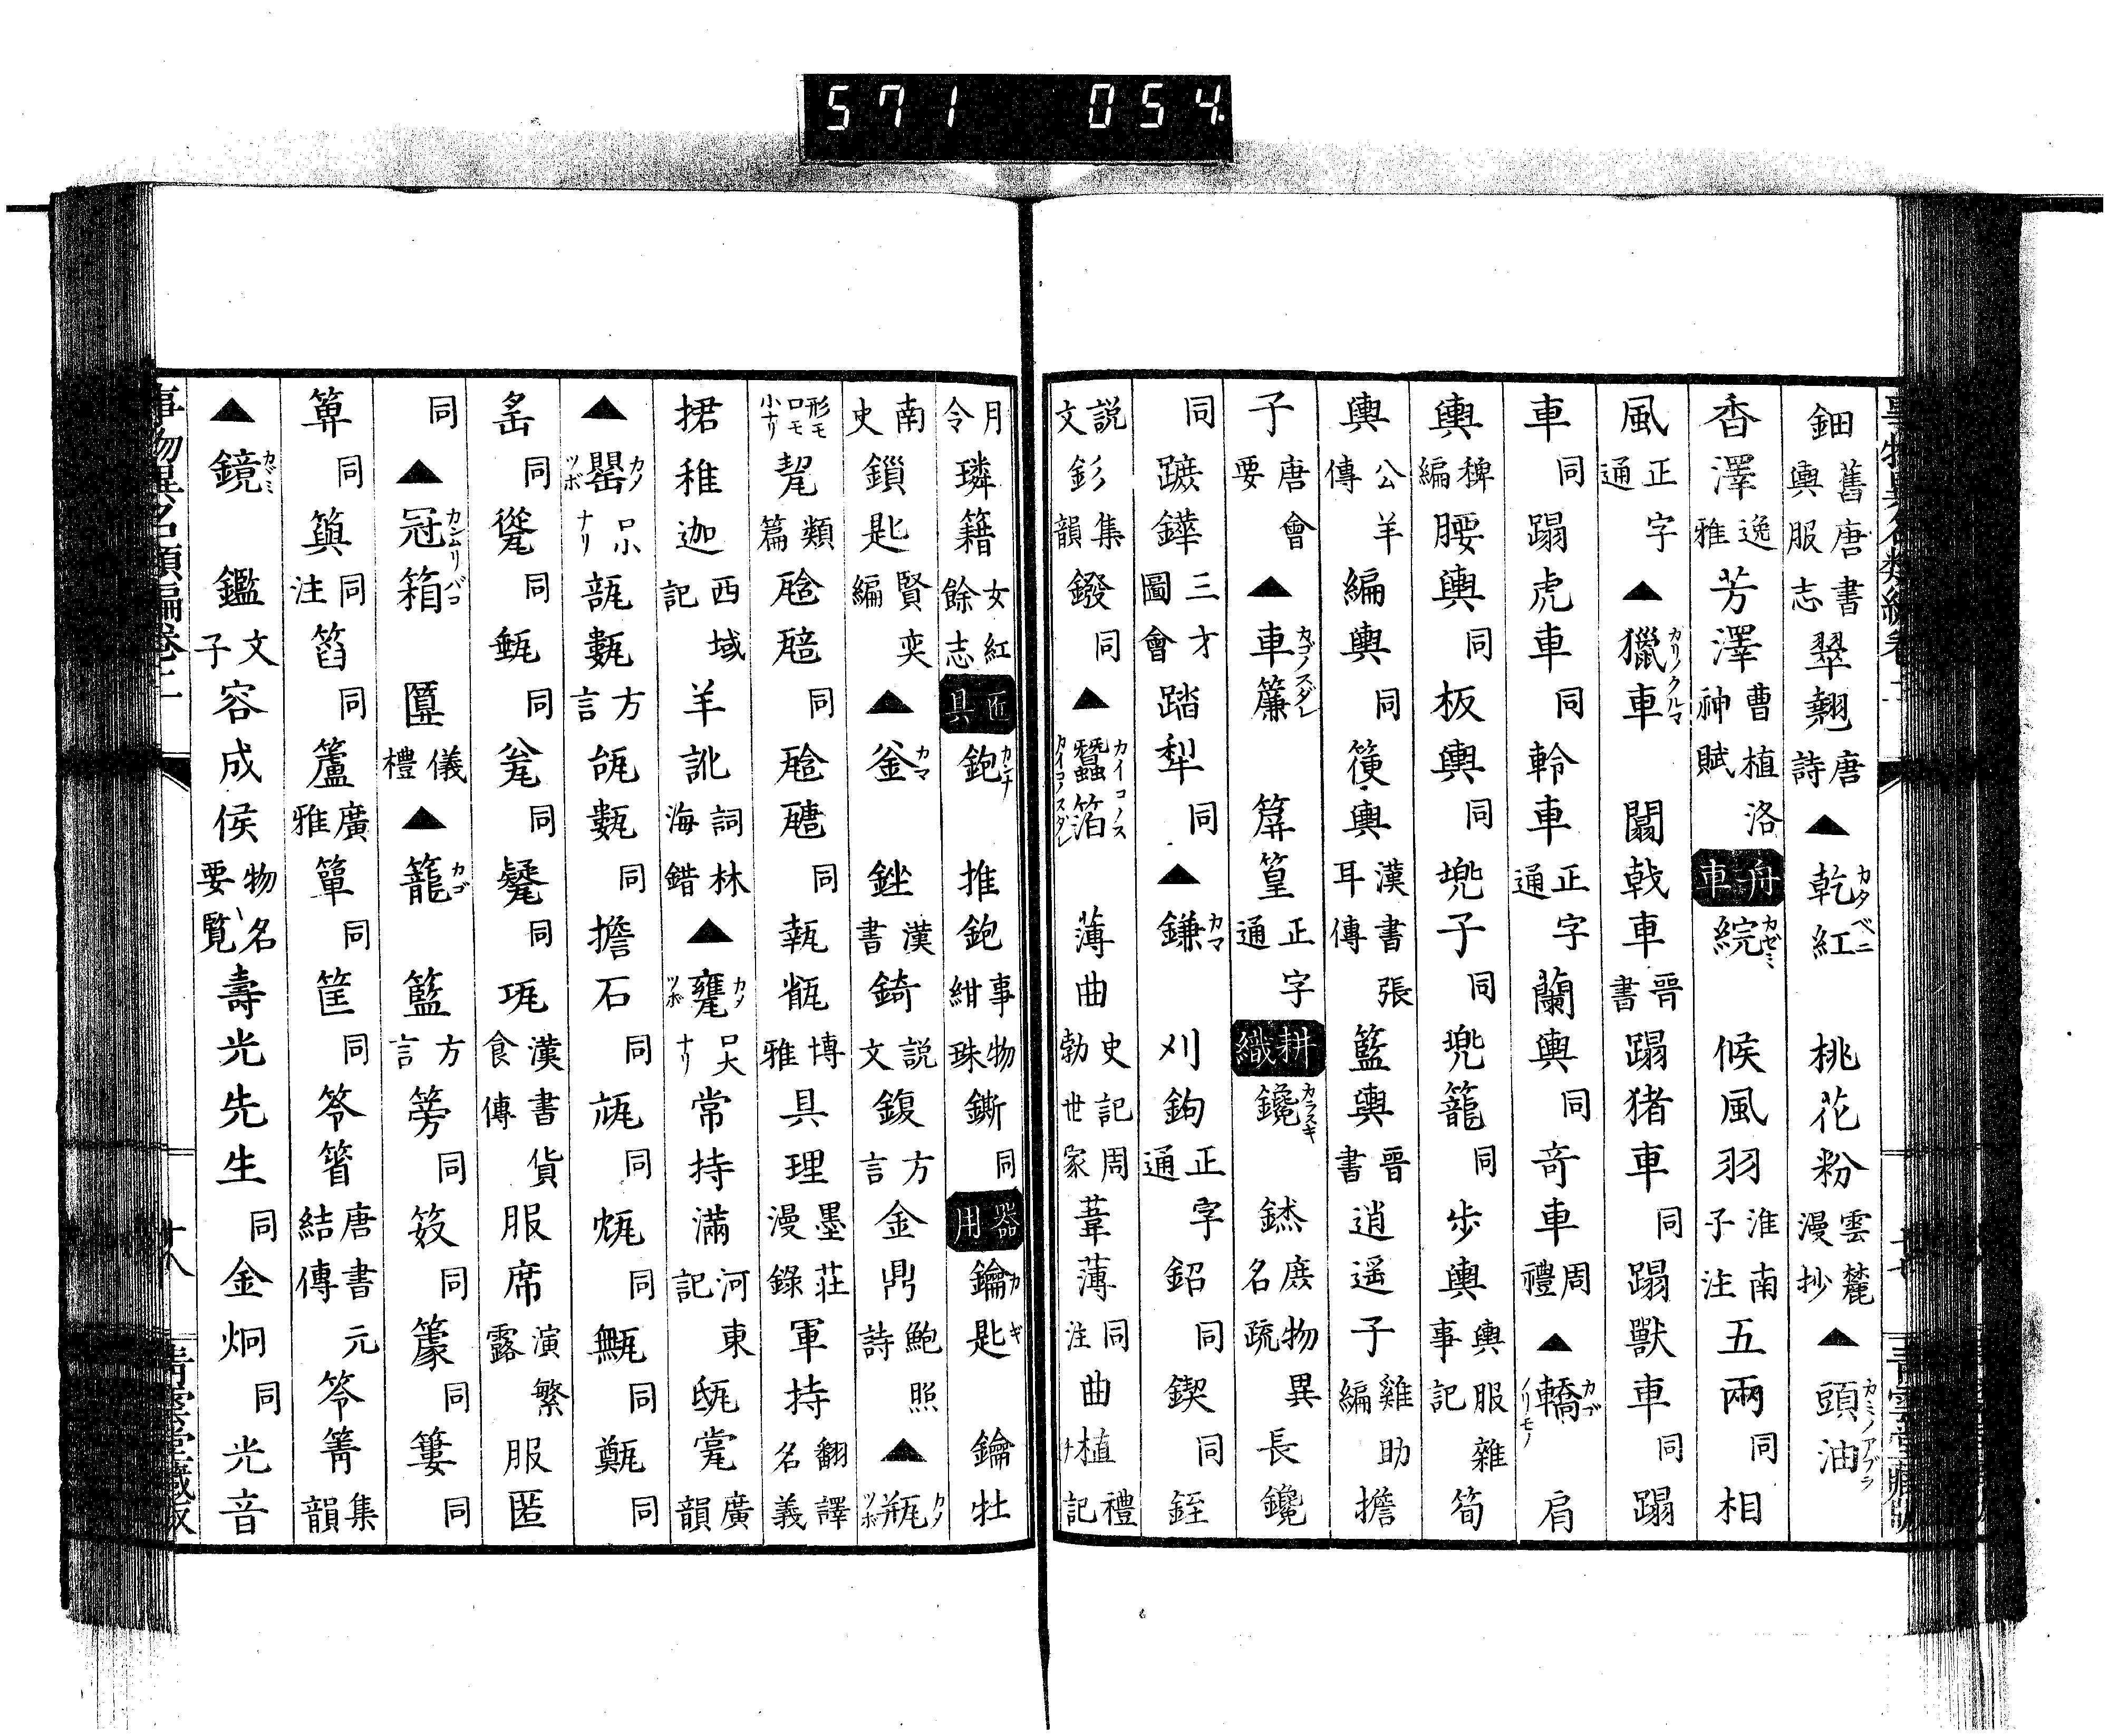 571 054
鈿舊唐書輿服志翠翹唐詩▲乾紅カタベニ桃花粉雲麓漫抄▲頭油カミノアブラ
香澤逸雅芳澤曹植洛神賦舟車綄カゼミ候風羽淮南子注五兩同相
風正字通▲獵車カリノクルマ闟戟車晉書蹋猪車同蹋獸車同蹋
車同蹋虎車同軨車正字通蘭輿同奇車周禮▲轎カゴノリモノ肩
輿稗編腰輿同板輿同兠子同兠籠同歩輿輿服雜事記筍
輿公羊傳編輿同箯輿漢書張耳傳籃輿晉書逍遥子雞助編擔
子唐會要▲車簾カゴノスダレ篟篁正字通耕織鑱カラスキ鎍名廣物異疏長鑱
同蹠鏵三才圖會踏犁同▲鎌カマ刈鉤正字通鉊同鍥同銍
説文釤集韻鏺同▲蠶箔カイコノスカイコノスダレ薄曲史記周勃世家葦薄同注曲植禮記
月令璘籍女紅餘志匠具鉋カンナ推鉋事物紺珠鐁同器用鑰匙カギ鑰牡
南史鎖匙賢奕編▲釜カマ銼漢書錡説文鍑方言金鼎鮑照詩▲瓶カメツボ
形モ口モ小ナリ類篇同同博雅具理墨莊漫錄軍持翻譯名義
捃稚迦西域記羊訛詞林海錯▲甕カメツボ口大ナリ常持滿河東記瓺㼕廣韻
▲罌カメツボ口小ナリ瓿甊方言瓭甊同擔石同㼚同同甒同甎同
䍃同同甀同瓮同同瓨漢書食貨傳服席演繁露服匿
同▲冠箱カンムリバコ匴儀禮▲籠カゴ籃方言篣同笯同篆同簍同
箄同籅同注筥同籚廣雅簞同筐同笭箵唐書元結傳笭箐集韻
▲鏡カヾミ鑑文子容成侯物名要覧壽光先生同金炯同光音
青雲堂藏版